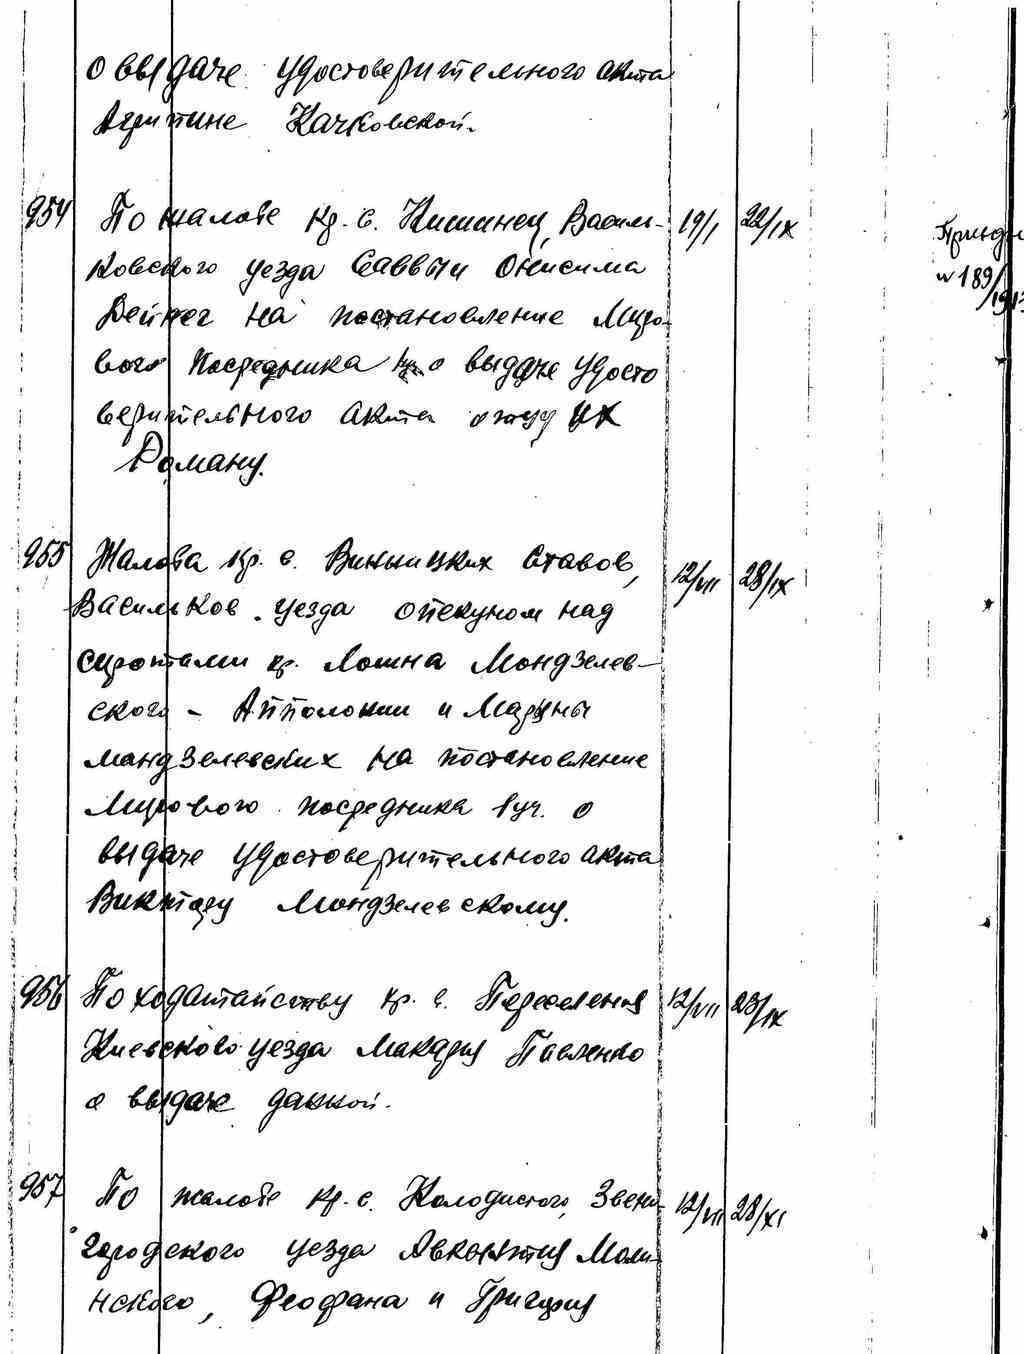 о выдаче удостоверительного акта
Агрипине Качковской.
954 По жалобе кр. с. Кишинец, Василь- 19/I 22/IX
ковского уезда Саввы и Онисима
Дейнег на постановление Миро-
вого Посредника о выдаче удосто
верительного акта отцу их
Роману.
№ 189/
955 Жалоба кр. с. Винницких Ставов, 12/VII 28/IX
Васильков. уезда опекуном над
сиротами кр. Мондзелев-
ского - Апполонии и Марины
Мандзелевских на постановление
Мирового посредника 1 уч. о
выдаче удостоверительного акта
Виктору Мондзелевскому.
956 По ходатайству кр. с. Переселения 12/VII 23/IX
Киевского уезда Макария Павленко
о выдаче данной.
957 По жалобе кр. с. Колодистого, Звени- 12/VII 28/XI
городского уезда Авксентия Моли-
нского, Феофана и Григория